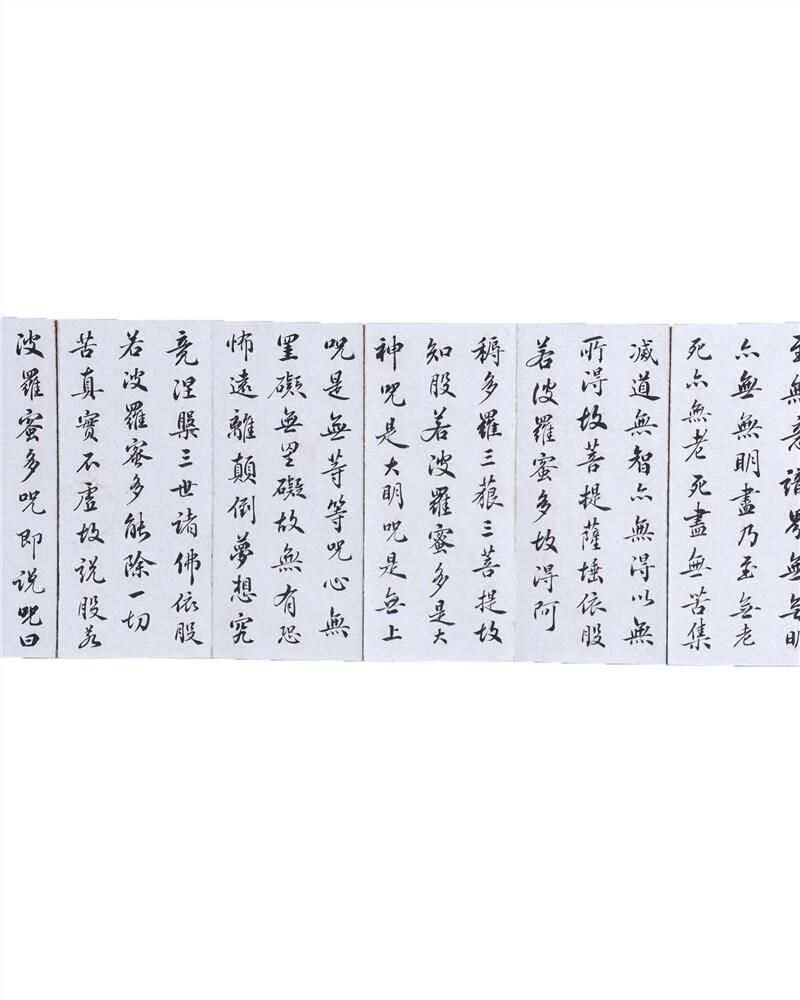 至無意識界無無明
亦無無明盡乃至無老
死亦無老死盡無苦集
滅道無智亦無得以無
所得故菩提薩埵依般
若波羅蜜多故得阿
耨多羅三藐三菩提故
知般若波羅蜜多是大
神呪是大明呪是無上
呪是無等等呪心無
罣礙無罣礙故無有恐
怖遠離顛倒夢想究
竟涅槃三世諸佛依般
若波羅蜜多能除一切
苦真實不虛故說般若
波羅蜜多呪即說呪曰